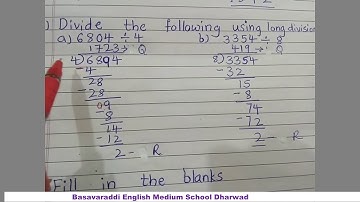 ) Divide the following using long division
a) 6804 ÷ 4 b) 3354 ÷ 8
1723 → Q 419 → Q
4)6894 8)3354
-4 -32
28 15
-28 -8
09 74
-8 -72
14 2 - R
-12
2 - R
Fill in the blanks
Basavaraddi English Medium School Dharwad